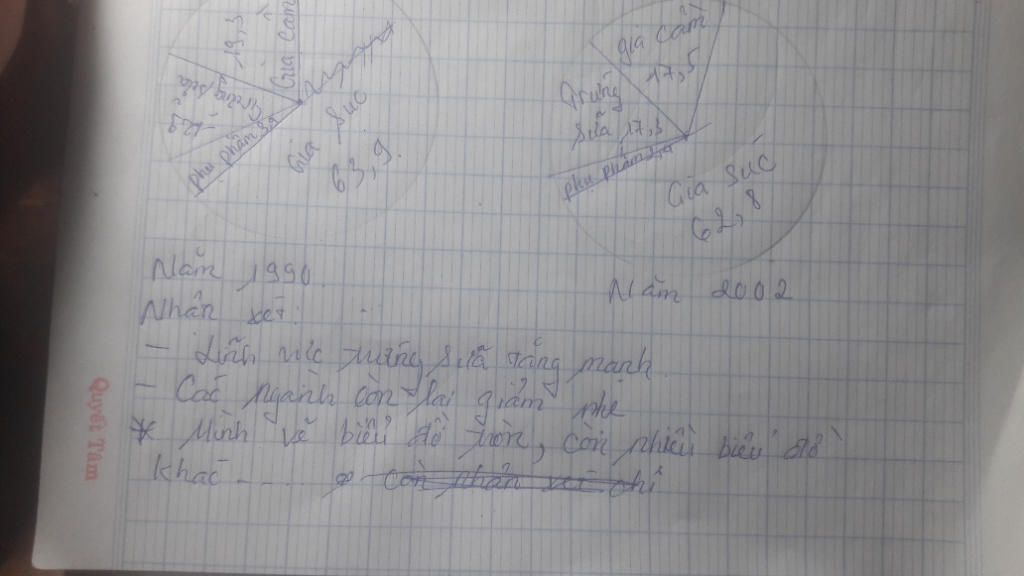 Gia Cầm
19,3
Trứng sữa
12,9
phụ phẩm 3,9
Gia súc
63,9
gia cầm
17,5
Trứng
sữa 17,3
phụ phẩm 2,4
Gia súc
62,8
Năm 1990
Năm 2002
Nhân xét:
- Lĩnh vực trứng sữa tăng mạnh
- Các ngành còn lại giảm nhẹ
* Mình vẽ biểu đồ tròn, còn nhiều biểu đồ
khác ....
Quyết Tâm